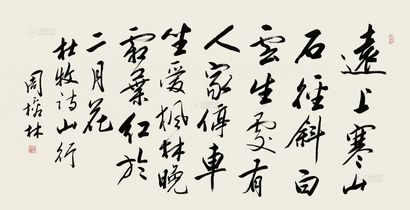 遠上寒山
石徑斜白
雲生處有
人家停車
坐愛楓林晚
霜葉紅於
二月花
杜牧詩山行